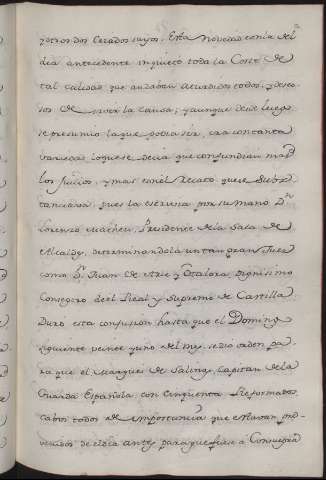 y otros dos Criados suyos. Esta novedad con la del
dia antecedente inquieto toda la Corte de
tal calidad que andaban aturdidos todos, y deseo-
sos de saver la causa; y aunque desde luego
se presumio la que podia ser, era con tanta
variedad lo que se decia que confundian mas
los Juicios, y mas con el Recato que se
tanciava, pues la escrivia por su mano Dn
Lorenzo Matheu, Presidente de la Sala de
Alcaldes, determinandola un tan gran Juez
como Dn Juan de Arce y Otalora, dignisimo
Consegero de el Real y Supremo de Castilla
Duro esta confusion hasta que el Domingo
siguiente veinte y uno del mes, se dio orden pa-
ra que el Marques de Salinas, Capitan de la
Guarda Española, con cinquenta Reformados,
Cabos todos de importancia que estavan pre-
venidos de el dia antes para que fuese a Consuegra